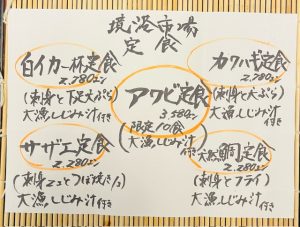 境港市場
定食
白イカ一杯定食
2,780エン
(刺身と下足天ぷら)
大漁しじみ汁付き
カワハギ定食
2,280エン
(刺身と天ぷら)
大漁しじみ汁付き
アワビ定食
3,580エン
限定10食
大漁しじみ汁付き
サザエ定食
2,280エン
(刺身2コとつぼ焼き1コ)
大漁しじみ汁付き
天然鯛定食
2,280エン
(刺身とフライ)
大漁しじみ汁付き